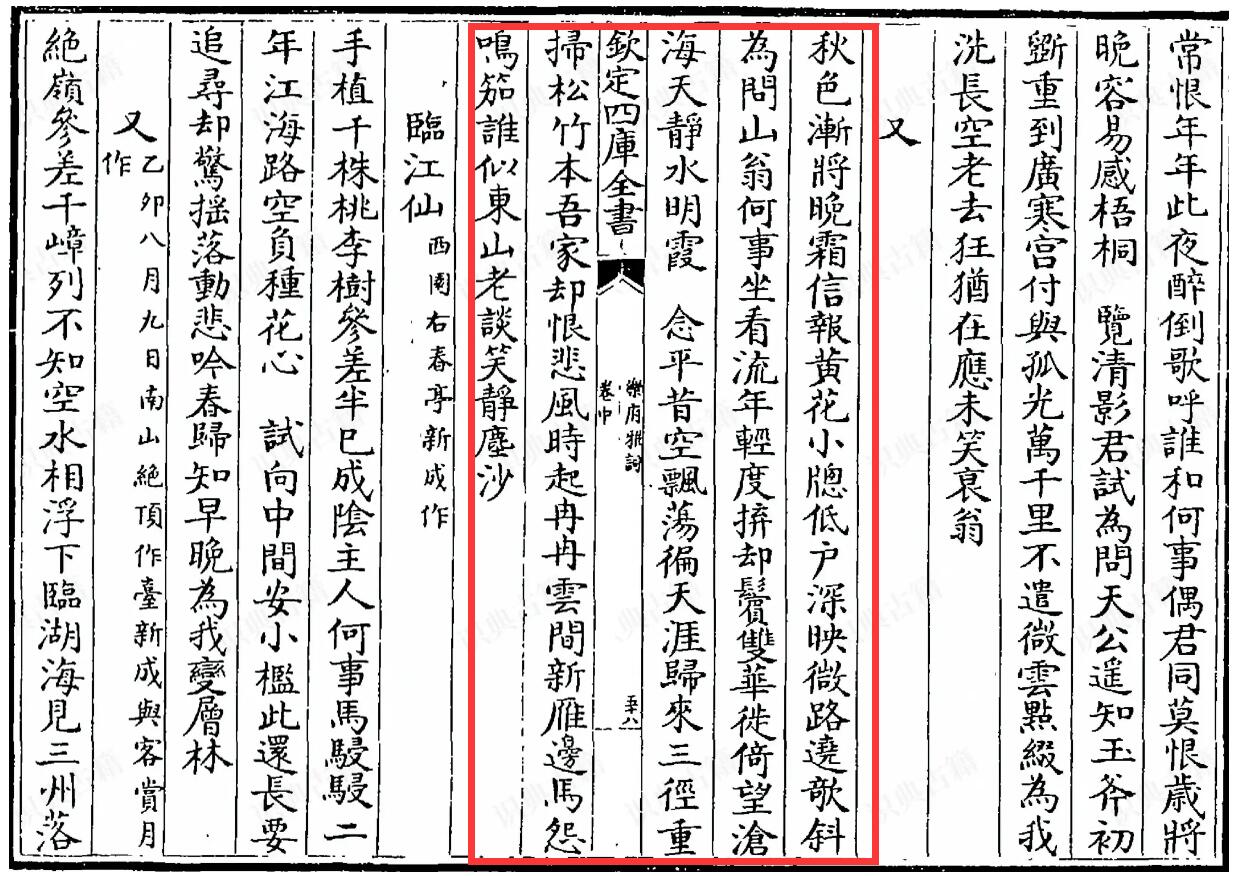 常恨年年此夜醉倒歌呼誰和何事偶君同莫恨歲將
晚容易感梧桐　覽清影君試為問天公遥知玉斧初
斵重到廣寒宫付與孤光萬千里不遣微雲㸃綴為我
洗長空老去狂猶在應未笑衰翁
又
秋色漸將晚霜信報黄花小牕低户深映微路遶欹斜
為問山翁何事坐看流年輕度拚却鬢雙華徙倚望滄
海天靜水明霞　念平昔空飄蕩徧天涯歸來三徑重
欽定四庫全書
樂府雅詞
卷中
五十八
掃松竹本吾家却恨悲風時起冉冉雲間新雁邊馬怨
鳴笳誰似東山老談笑靜塵沙
臨江仙西園右春亭新成作
手植千株桃李樹參差半已成陰主人何事馬駸駸二
年江海路空負種花心　試向中間安小檻此還長要
追尋却驚揺落動悲吟春歸知早晚為我變層林
又乙夘八月九日南山絶頂作臺新成與客賞月
作
絶嶺參差千嶂列不知空水相浮下臨湖海見三州落